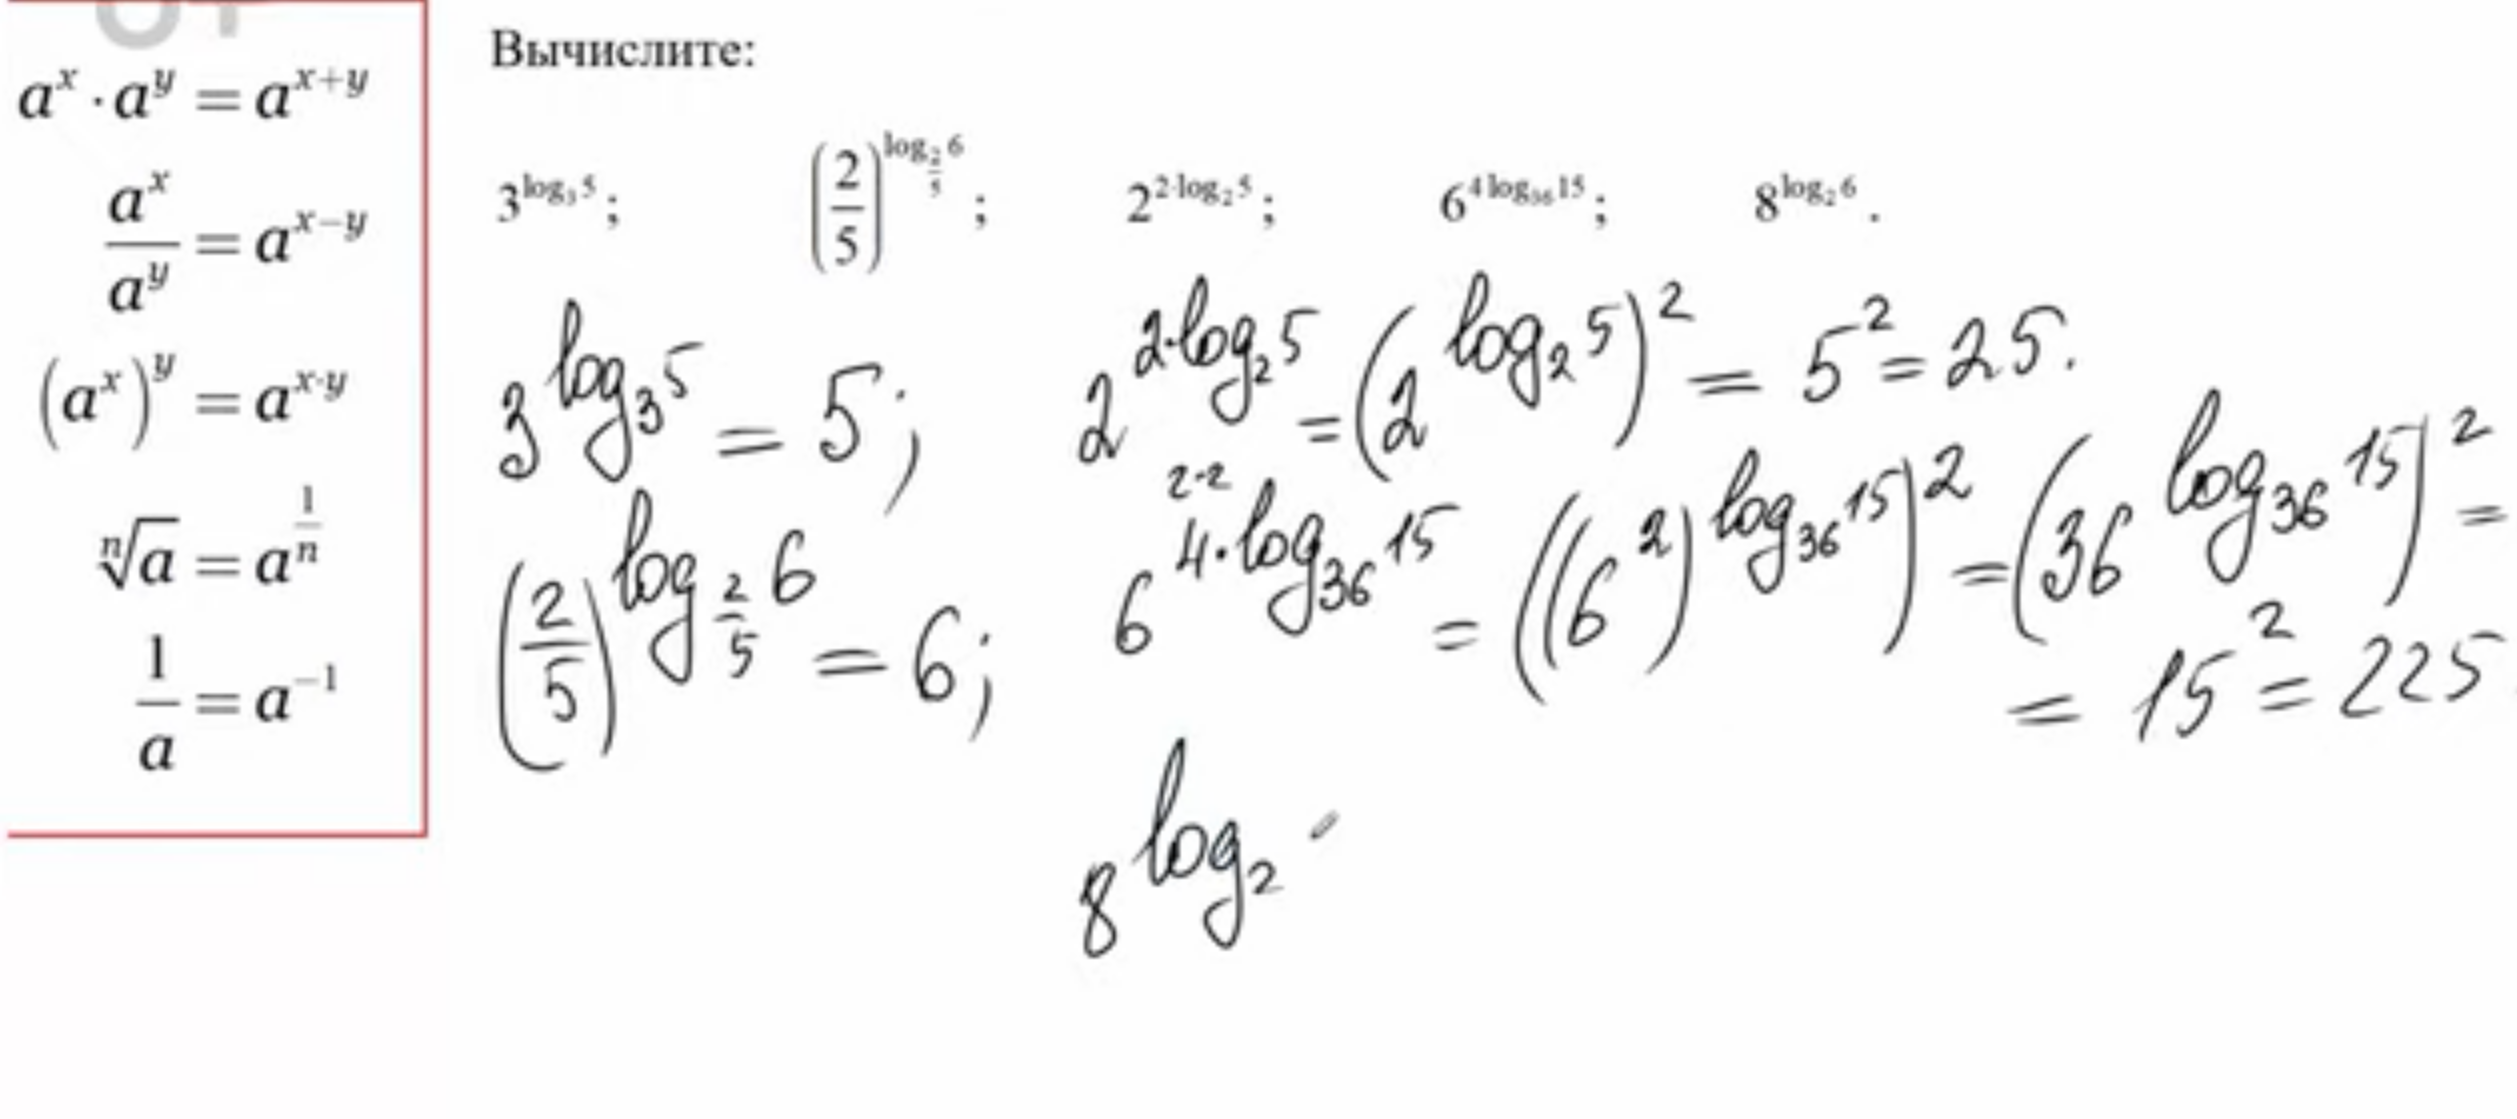 a^x · a^y = a^{x+y}
a^x / a^y = a^{x−y}
(a^x)^y = a^{x·y}
ⁿ√a = a^{1/n}
1/a = a^{−1}
Вычислите:
3^{log_3 5}; (2/5)^{log_{2/5} 6}; 2^{2·log_2 5}; 6^{4 log_{36} 15}; 8^{log_2 6}.
3^{log_3 5} = 5;
(2/5)^{log_{2/5} 6} = 6;
2^{2·log_2 5} = (2^{log_2 5})^2 = 5^2 = 25.
2·2
6^{4·log_{36} 15} = ((6^2)^{log_{36} 15})^2 = (36^{log_{36} 15})^2 =
= 15^2 = 225
8^{log_2